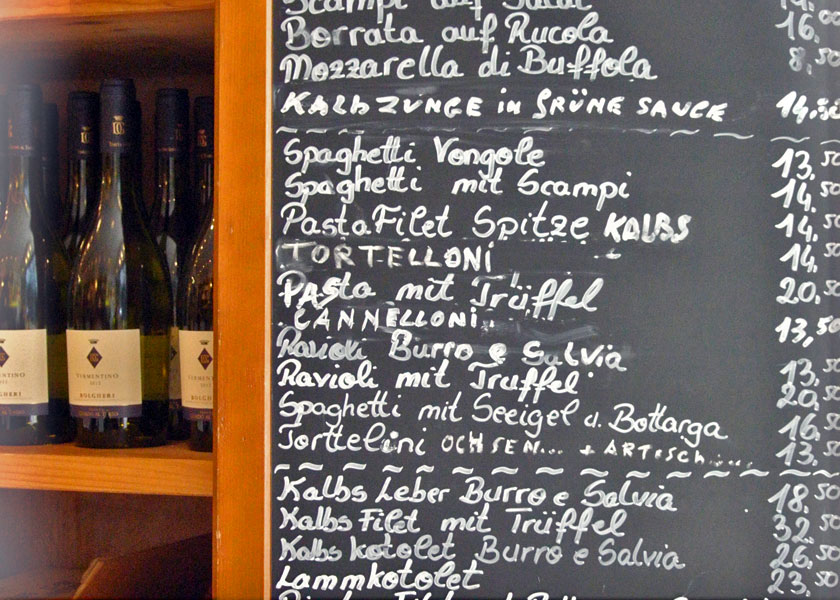 Scampi auf Salat 14.
Borrata auf Rucola 16.
Mozzarella di Buffola 8.50
KALBZUNGE in GRÜNE SAUCE 14.50
Spaghetti Vongole 13.50
Spaghetti mit Scampi 14.50
Pasta Filet Spitze KALBS 14.50
TORTELLONI 14.50
Pasta mit Trüffel 20.50
CANNELLONI.. 13,50
Ravioli Burro e Salvia 13.50
Ravioli mit Truffel 20.50
Spaghetti mit Seeigel d. Bottarga 16.50
Torttelini OCHSEN... + ARTISCH..... 13.50
Kalbs Leber Burro e Salvia 18.50
Kalbs Filet mit Trüffel 32.50
Kalbs kotolet Burro e Salvia 26.50
Lammkotolet 23.50
VERMENTINO
2012
BOLGHERI